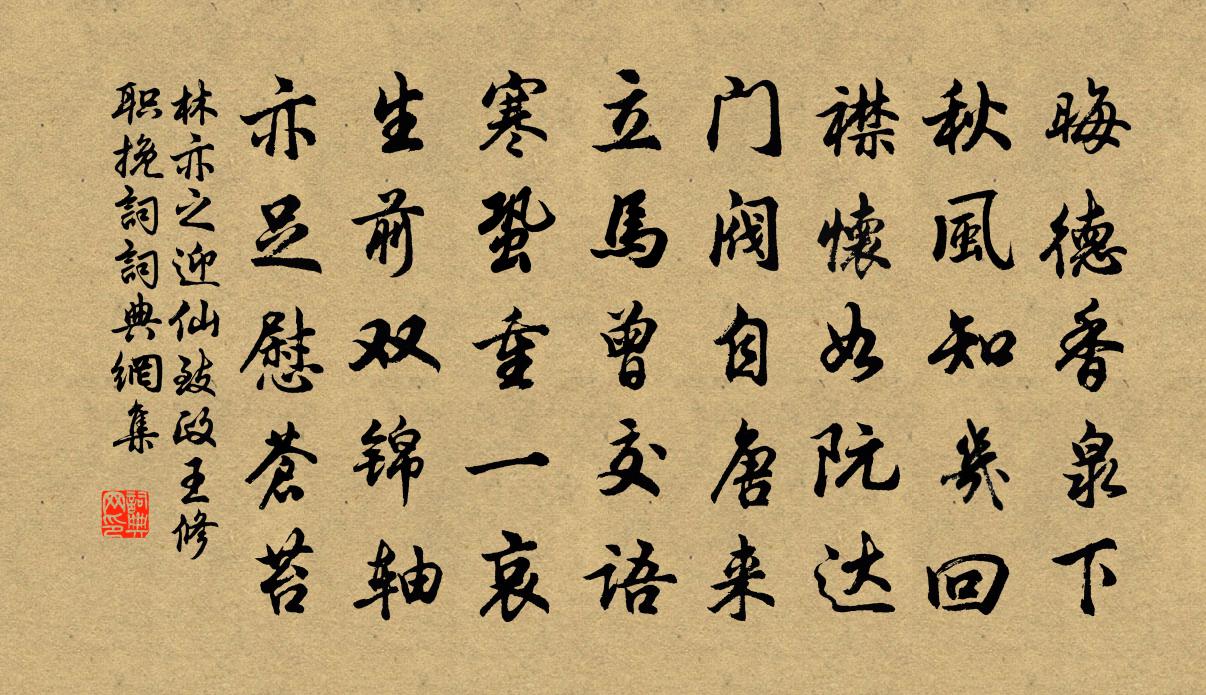 晦德香泉下
秋風知幾回
襟懷如阮达
门阀自唐来
立馬曾交语
寒蛩重一哀
生前双锦轴
亦足慰蒼苔
林亦之迎仙致政王修
职挽詞詞典網集
詞典
网印